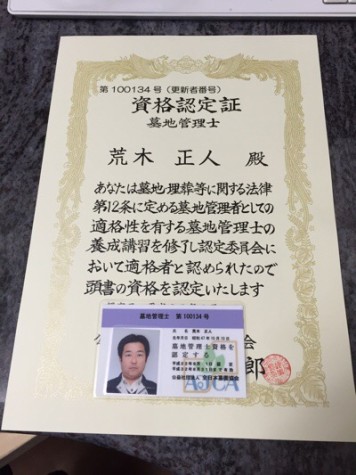 第100134号(更新者番号)
資格認定証
墓地管理士
荒木 正人 殿
あなたは墓地・埋葬等に関する法律
第12条に定める墓地管理者としての
適格性を有する墓地管理士の
養成講習を修了し認定委員会に
おいて適格者と認められたので
頭書の資格を認定いたします
墓地管理士 第100134号
氏名 荒木 正人
墓地管理士資格を
認定する
公益社団法人 全日本墓園協会
会
郎